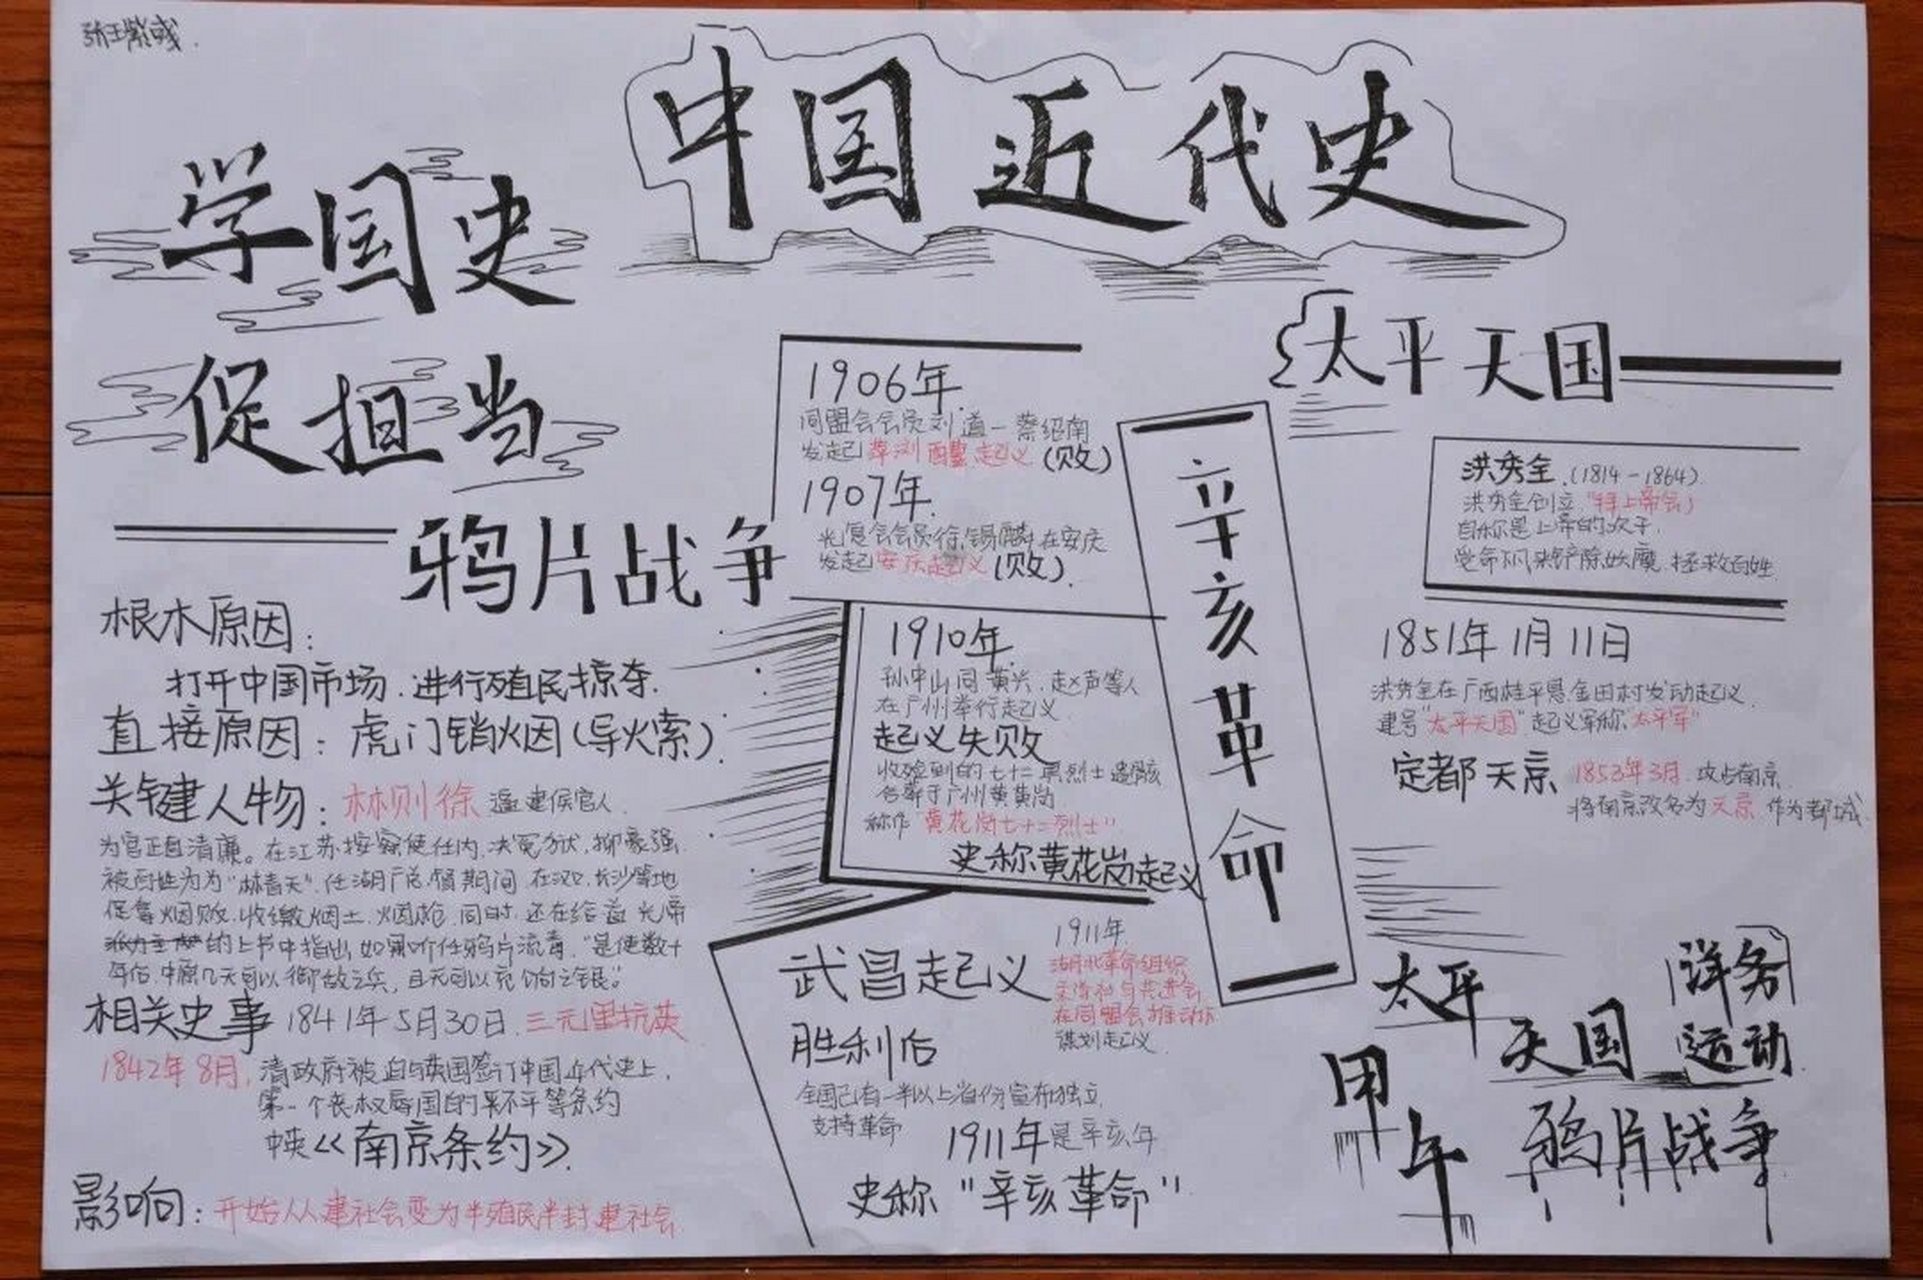 中国近代史
学国史
促担当
鸦片战争
根本原因：
打开中国市场.进行殖民掠夺.
直接原因：虎门销烟(导火索).
关键人物：林则徐 建侯官人.
为官正直清廉。在江苏按察使任内.决冤狱.抑豪强.
被百姓为为"林青天".任湖广总督期间.在汉口.长沙等地
收缴烟土.烟枪.同时.还在给道光帝
的上书中指出.如果听任鸦片流毒."是使数十
年后.中原几无可以御敌之兵，且无可以充饷之银。"
相关史事 1841年5月30日.三元里抗英
1842年8月,清政府被迫与英国签订中国近代史上,
第一个丧权辱国的不平等条约
《南京条约》.
影响：开始从建社会变为半殖民半封建社会
1906年.
同盟会会员刘道一蔡绍南
发起萍浏醴起义(败)
1907年.
光复会会员徐锡麟在安庆
发起安庆起义(败).
1910年.
孙中山同黄兴.赵声等人
在广州举行起义.
起义失败
收殓到的七十二具烈士遗骸
合葬于广州黄黄岗
称作"黄花岗七十二烈士"
史称黄花岗起义
辛亥革命
武昌起义
1911年.
湖北革命组织
文学社与共进会
在同盟会推动下
谋划起义.
胜利后
全国已有一半以上省份宣布独立
支持革命
1911年是辛亥年
史称"辛亥革命".
太平天国
洪秀全.(1814-1864).
洪秀全创立"拜上帝会)
自称是上帝的次子.
受命下凡来铲除妖魔.拯救百姓.
1851年1月11日
洪秀全在广西桂平县金田村发动起义.
建号"太平天国"起义军称"太平军"
定都天京 1853年3月.攻占南京.
将南京改名为天京.作为都城.
太平天国
洋务运动
甲午
鸦片战争